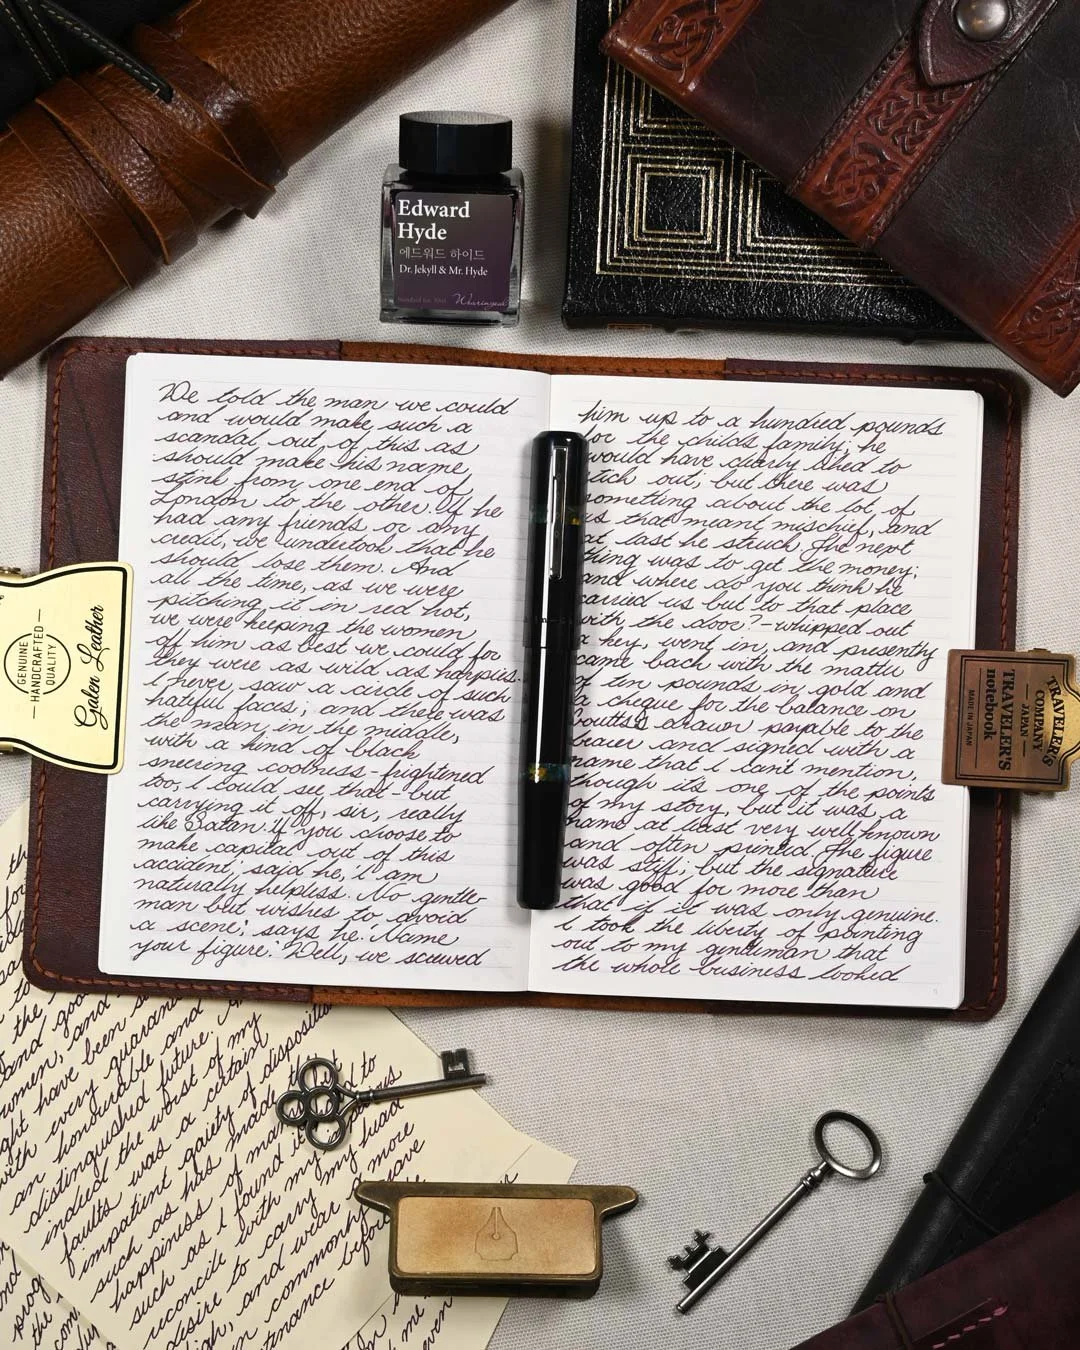 Edward
Hyde
에드워드 하이드
Dr. Jekyll & Mr. Hyde
Wearingeul
We told the man we could
and would make such a
scandal out of this as
should make his name
stink from one end of
London to the other. If he
had any friends or any
credit, we undertook that he
should lose them. And
all the time, as we were
pitching it in red hot,
we were keeping the women
off him as best we could for
they were as wild as harpies.
I never saw a circle of such
hateful faces; and there was
the man in the middle,
with a kind of black
sneering coolness-frightened
too, I could see that-but
carrying it off, sir, really
like Satan. 'If you choose to
make capital out of this
accident', said he, 'I am
naturally helpless. No gentle-
man but wishes to avoid
a scene,' says he. 'Name
your figure.' Well, we screwed
him up to a hundred pounds
for the childs family; he
would have clearly liked to
stick out; but there was
something about the lot of
us that meant mischief, and
at last he struck. The next
thing was to get the money;
and where do you think he
carried us but to that place
with the door?-whipped out
a key, went in, and presently
came back with the matter
of ten pounds in gold and
a cheque for the balance on
Coutts's drawn payable to the
bearer and signed with a
name that I can't mention,
though it's one of the points
of my story, but it was a
name at least very well known
and often printed. The figure
was stiff; but the signature
was good for more than
that if it was only genuine.
I took the liberty of pointing
out to my gentleman that
the whole business looked
GENUINE
HANDCRAFTED
QUALITY
Galen Leather
TRAVELER'S
COMPANY
JAPAN
TRAVELER'S
notebook
MADE IN JAPAN
the
and good
women, and
might have been
with every guaran
an honourable and
distinguished future.
indeed the worst of my
faults was a certain
impatient gaiety of disposition
such as has made the
happiness of many
such as I found it
reconcile with my
desire to carry my head
high, and wear a more
commonly grave
before
me
even